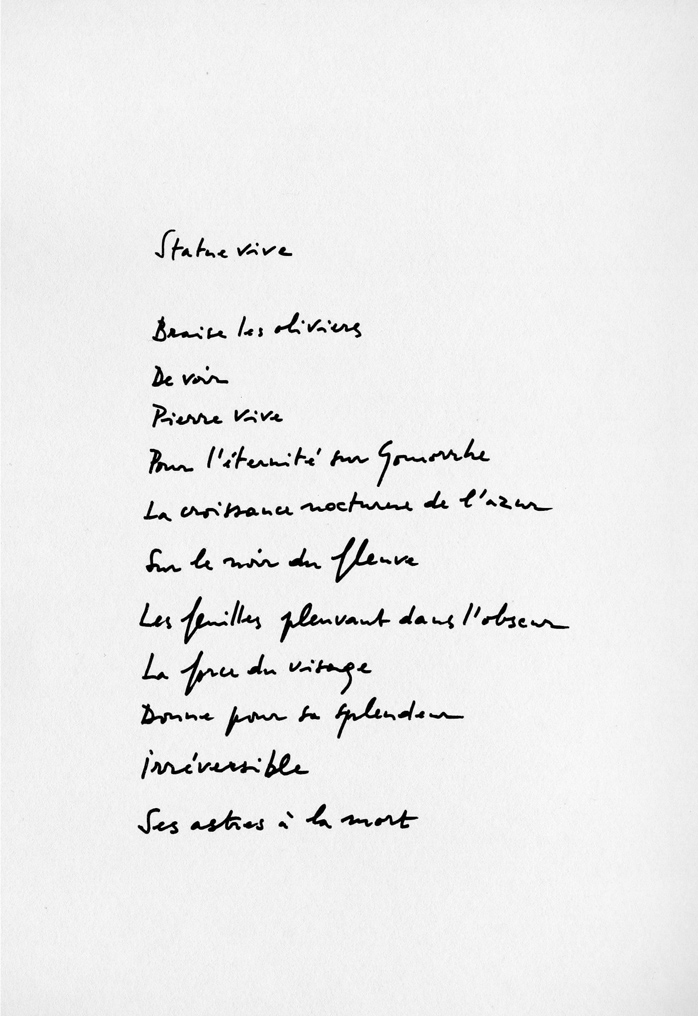 Statue vive
Braise les oliviers
De voir
Pierre vive
Pour l'éternité sur Gomorrhe
La croissance nocturne de l'azur
Sur le noir du fleuve
Les feuilles pleuvant dans l'obscur
La force du visage
Donne pour sa splendeur
irréversible
Ses astres à la mort